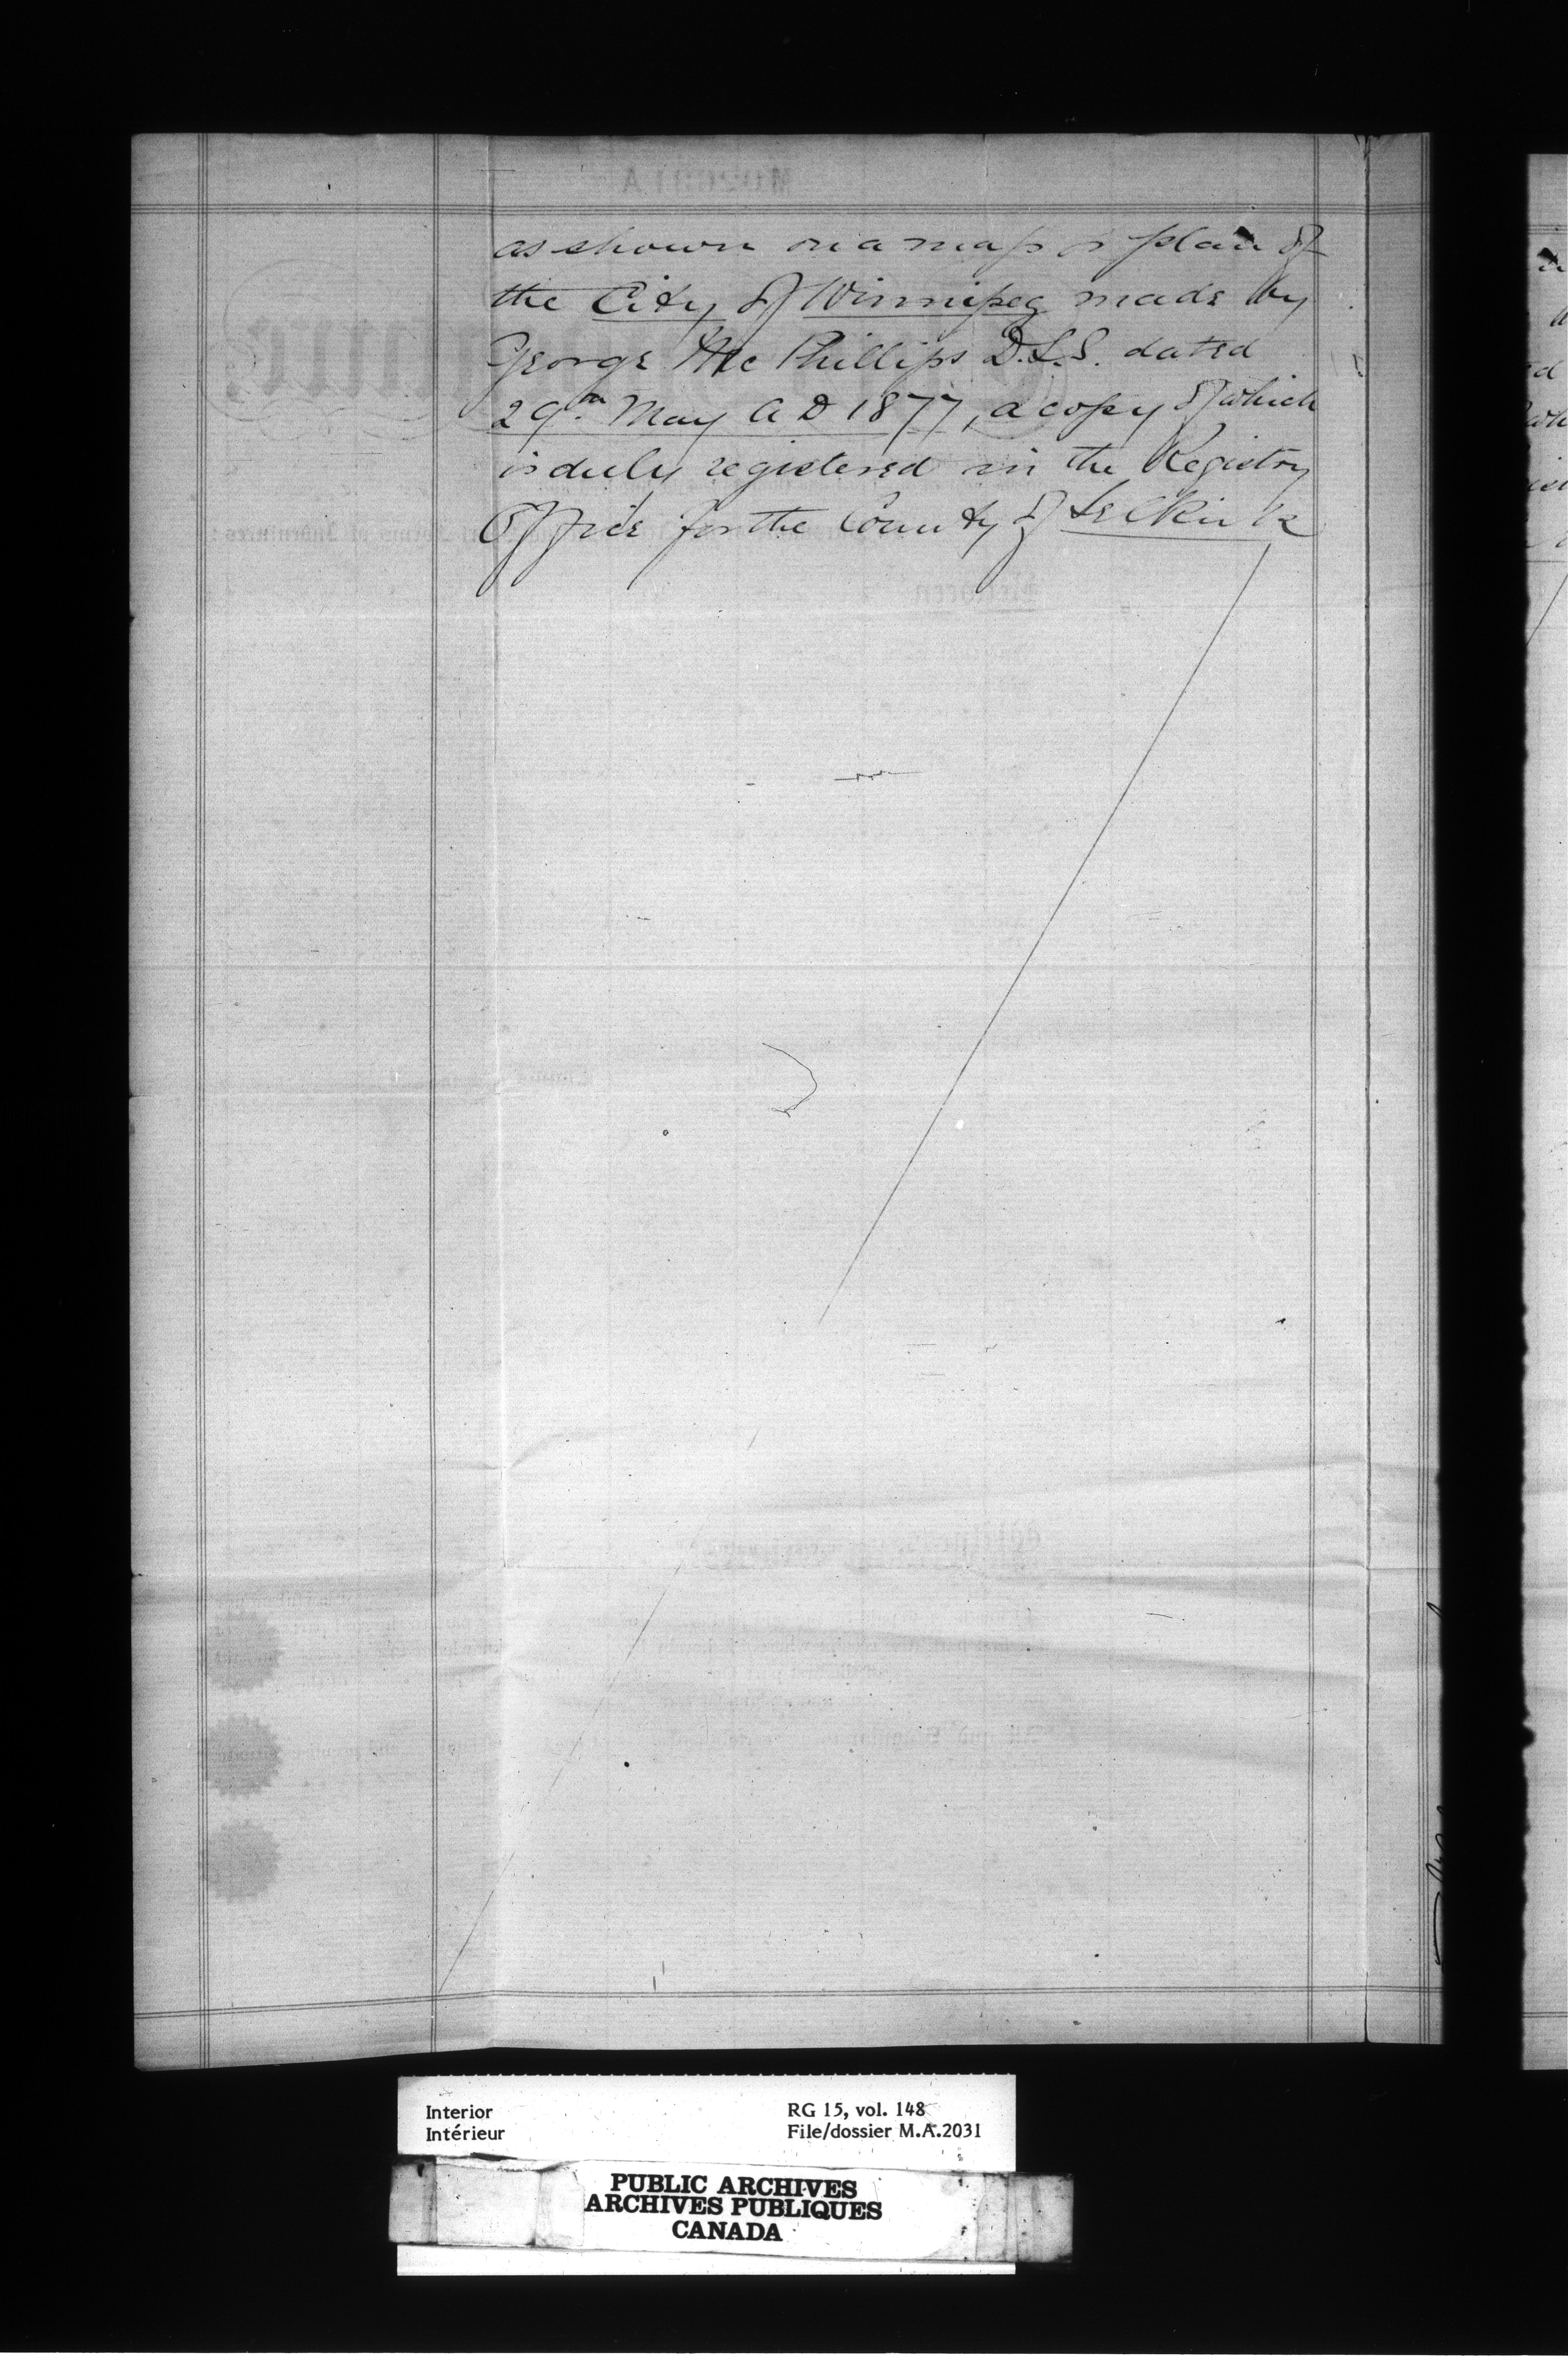 as shown on a map or plan of
the City of Winnipeg made by
George Mc Phillips D.L.S. dated
29th May A D 1877, a copy of which
is duly registered in the Registry
Office for the County of Selkirk
Interior
Intérieur
RG 15, vol. 148
File/dossier M.A.2031
PUBLIC ARCHIVES
ARCHIVES PUBLIQUES
CANADA